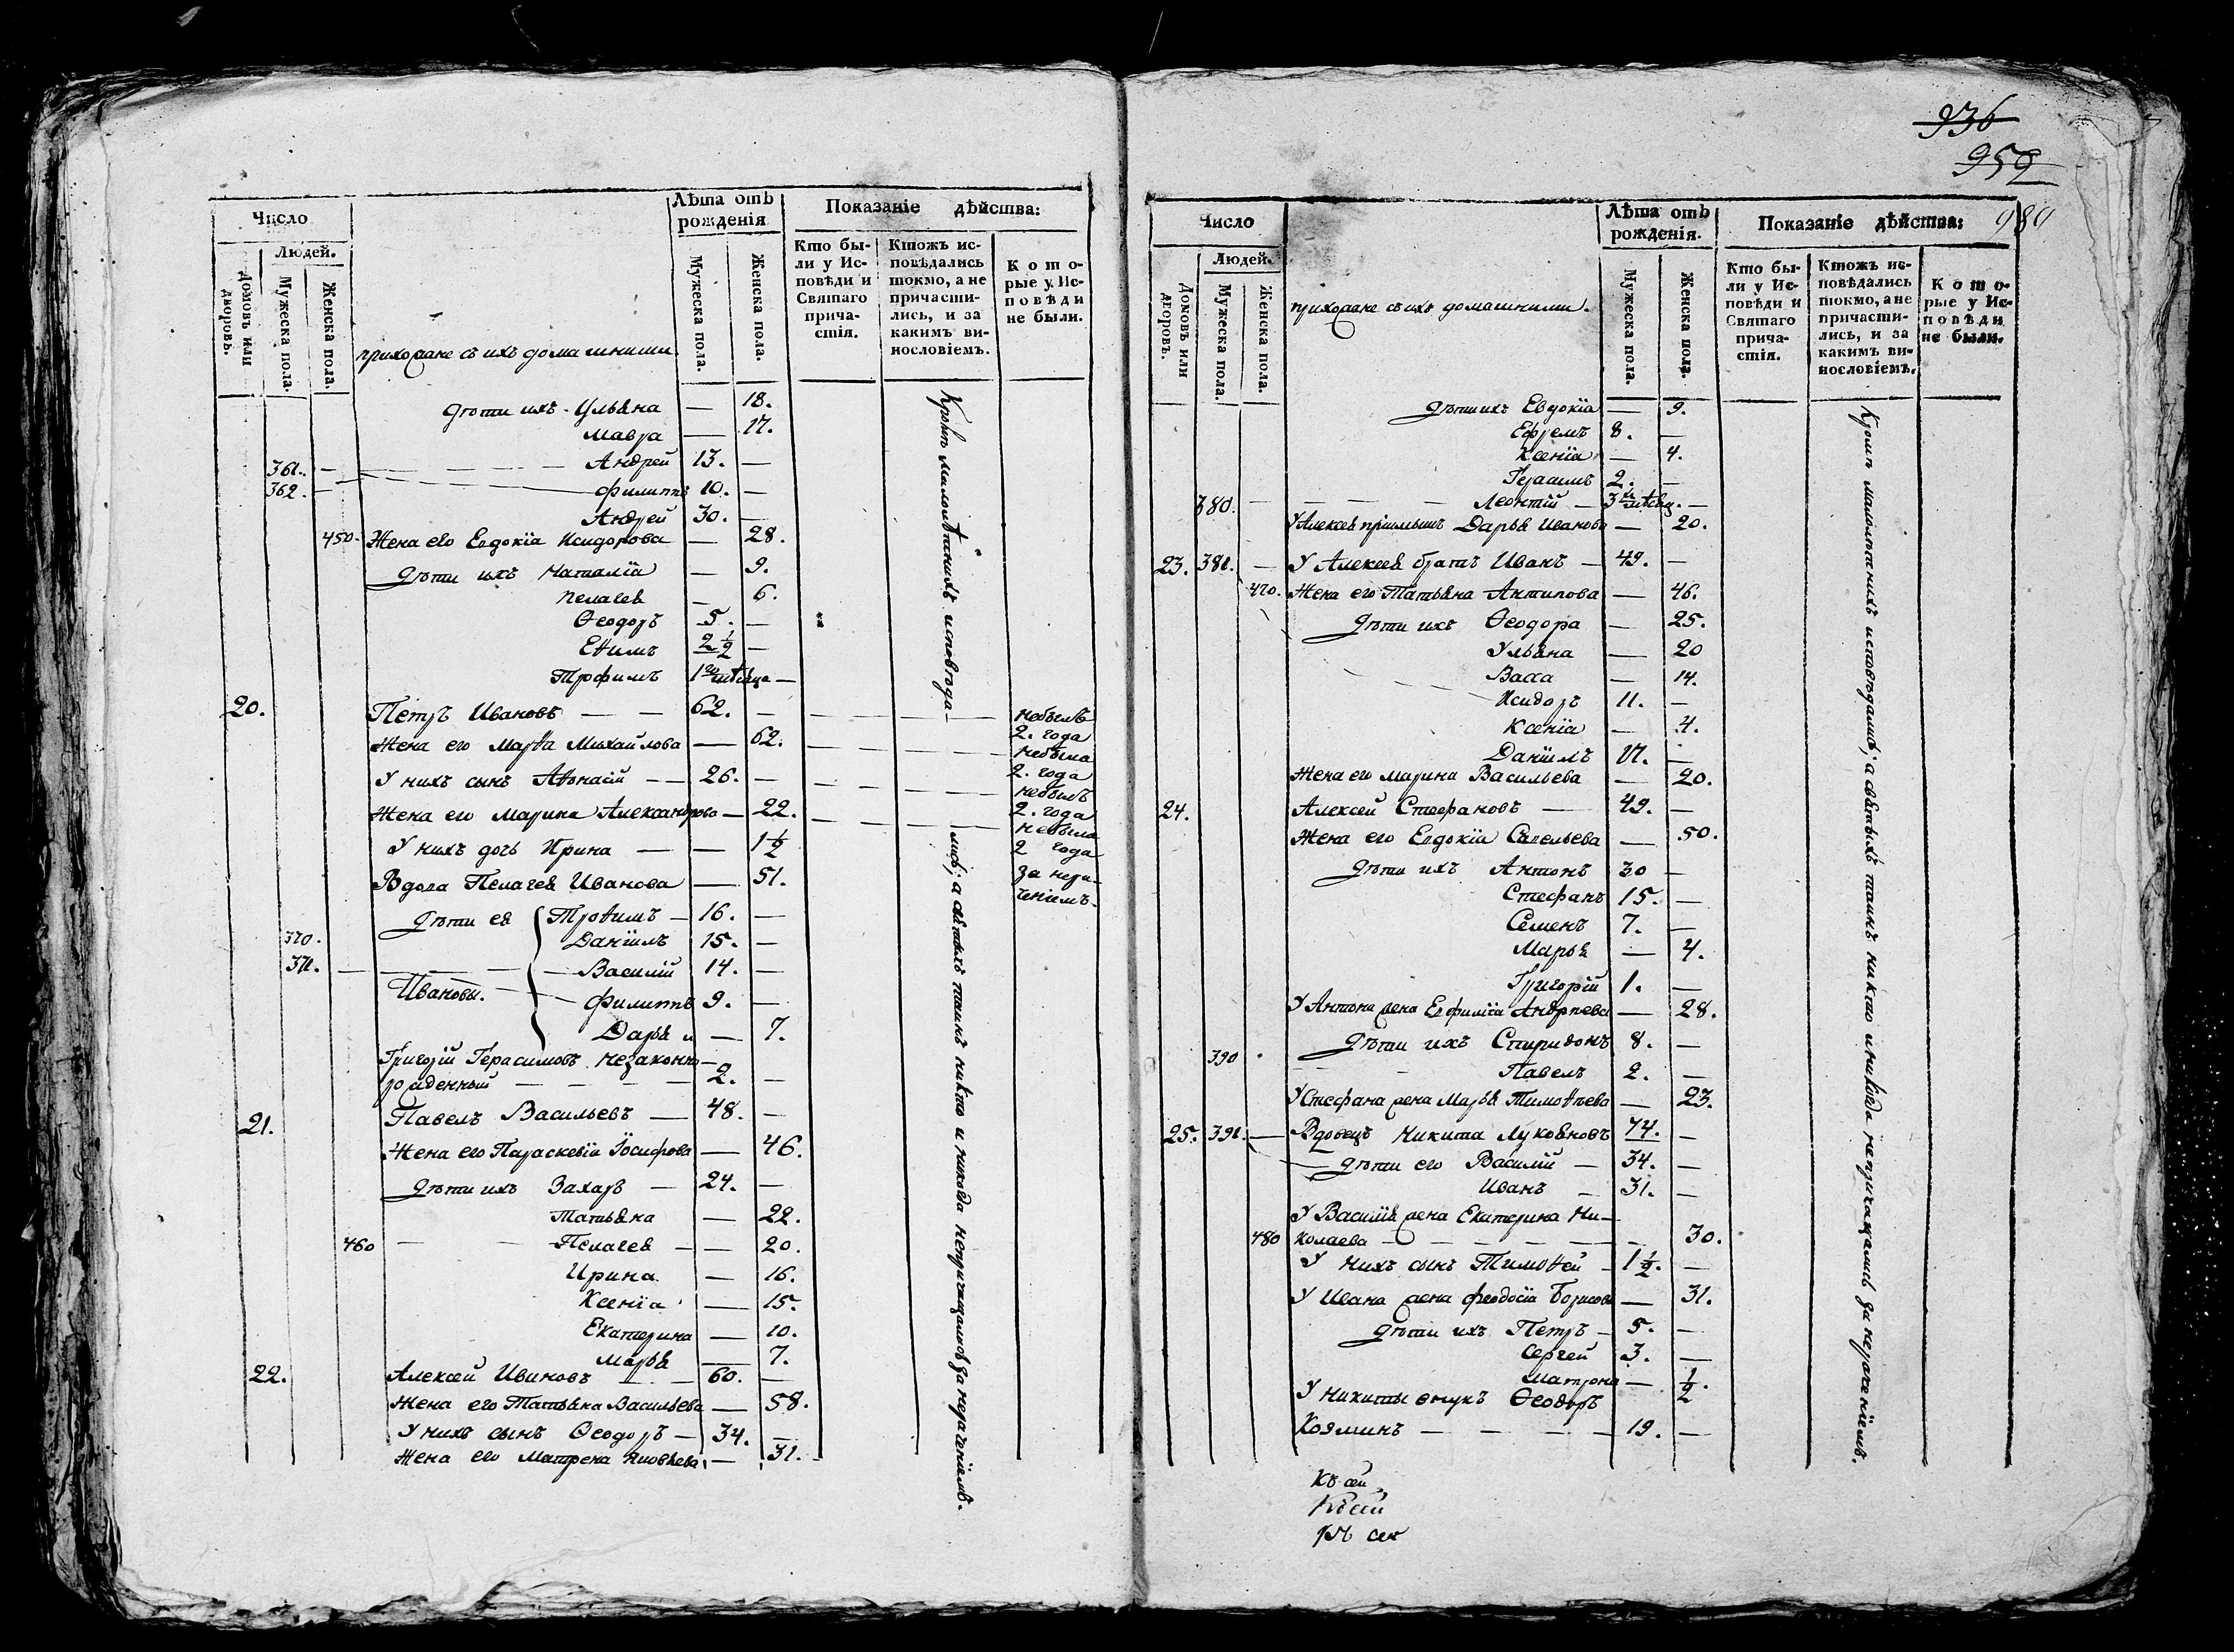 936
959
980
Число
Людей.
Домовъ или дворовъ.
Мужеска пола.
Женска пола.
прихожане съ ихъ домашними
Лѣта отъ рожденія
Мужеска пола.
Женска пола.
Показаніе дѣйства:
Кто были у Исповѣди и Святаго причастія.
Ктожъ исповѣдались токмо, а не причастились, и за какимъ винословіемъ.
Которые у Исповѣди не были.
дѣти ихъ Ульяна — 18.
Мавра — 17.
361. — Андрей 13. —
362. — Филиппъ 10. —
Андрей 30. —
450. Жена его Евдокіа Исидорова — 28.
дѣти ихъ Наталіа — 9.
Пелагея — 6.
Ѳеодоръ 5. —
Еѳимъ 2 1/2 —
Трофимъ 1го мѣсяца —
20. Петръ Ивановъ — — 62. — небылъ 2. года
Жена его Марѳа Михайлова — 62. небыла 2. года
У нихъ сынъ Аѳонасій — — 26. — небылъ 2. года
Жена его Марина Александрова — 22. небыла 2 года
У нихъ дочь Ирина — — 1 1/2 за нера-
Вдова Пелагея Иванова — 51. ченіемъ.
дѣти ея Троѳимъ — 16. —
370. Даніилъ 15. —
371. — Василій 14. —
Ивановы. Филиппъ 9. —
Дарья и — 7.
Григорій Герасимовъ незаконно-
рожденный — 2. —
21. Павелъ Васильевъ — 48. —
Жена его Параскевіа Іосифова — 46.
дѣти ихъ Захаръ — 24. —
Татьяна — 22.
460 — Пелагея — — 20.
Ирина — 16.
Ксеніа — 15.
Екатерина — 10.
Марья — 7.
22. Алексей Ивановъ — 60. —
Жена его Татьяна Васильева — 58.
У нихъ сынъ Ѳеодоръ — 34. —
Жена его Матрена Яковлева — 31.
Кромѣ малолѣтнихъ исповѣда-
лись; а святыхъ таинъ никто и никогда непричащались за нераченіемъ.
Число
Людей.
Домовъ или дворовъ.
Мужеска пола.
Женска пола.
прихожане съ ихъ домашними.
Лѣта отъ рожденія.
Мужеска пола.
Женска пола.
Показаніе дѣйства:
Кто были у Исповѣди и Святаго причастія.
Ктожъ исповѣдались токмо, а не причастились, и за какимъ винословіемъ.
Которые у Исповѣди не были.
дѣти ихъ Евдокіа — 9.
Ефремъ 8. —
Ксеніа — 4.
Герасимъ 2. —
380. — Леонтій — 3хъ мѣсяц. —
У Алексея пріимышъ Дарья Иванова — 20.
23. 381. — У Алексея братъ Иванъ — 49. —
470. Жена его Татьяна Антипова — 46.
дѣти ихъ Ѳеодора — 25.
Ульяна — 20
Васса — 14.
Исидоръ 11. —
Ксеніа — 4.
Даніилъ —
Жена его Марина Васильева — 20.
24. Алексей Стефановъ — 49. —
Жена его Евдокіа Савельева — 50.
дѣти ихъ Антонъ 30 —
Стефанъ 15. —
Семенъ 7. —
Марья — 4.
Григорій 1. —
У Антона жена Евфиміа Андреева — 28.
дѣти ихъ Спиридонъ 8. —
390 Павелъ 2. —
У Стефана жена Марья Тимоѳеева — 23.
25. 391. — Вдовецъ Никита Лукьяновъ 74. —
дѣти его Василій — 34. —
Иванъ — 31. —
У Василія жена Екатерина Ни-
480 колаева — 30.
У нихъ сынъ Тимоѳей — 1 1/2. —
У Ивана жена Феодосіа Борисова — 31.
дѣти ихъ Петръ — 5. —
Сергей 3. —
Матрона — 1/2.
У Никиты внукъ Ѳеодоръ
Козминъ — 19. —
Кромѣ малолѣтнихъ исповѣдались; а святыхъ таинъ никто и никогда непричащались за нераченіемъ.
Къ сей
Къ сей